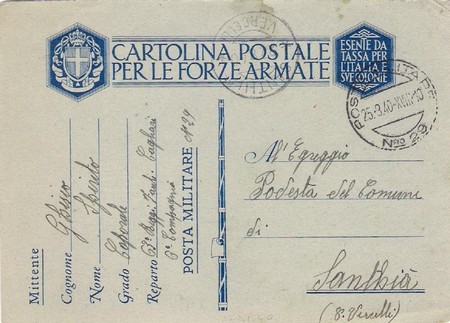 CARTOLINA POSTALE
PER LE FORZE ARMATE
ESENTE DA
TASSA PER
L'ITALIA
SUE COLONIE
VERCELLI
POSTA MILITARE
25.3.40-XVIII
No 29
All'Egreggio
Podestà del Comune
di
Santhià
(P. Vercelli)
Mittente
Cognome
Nome Spirito
Grado Caporale
Reparto 63° Regg. Fant. Cagliari
6a Compagnia
POSTA MILITARE No 29